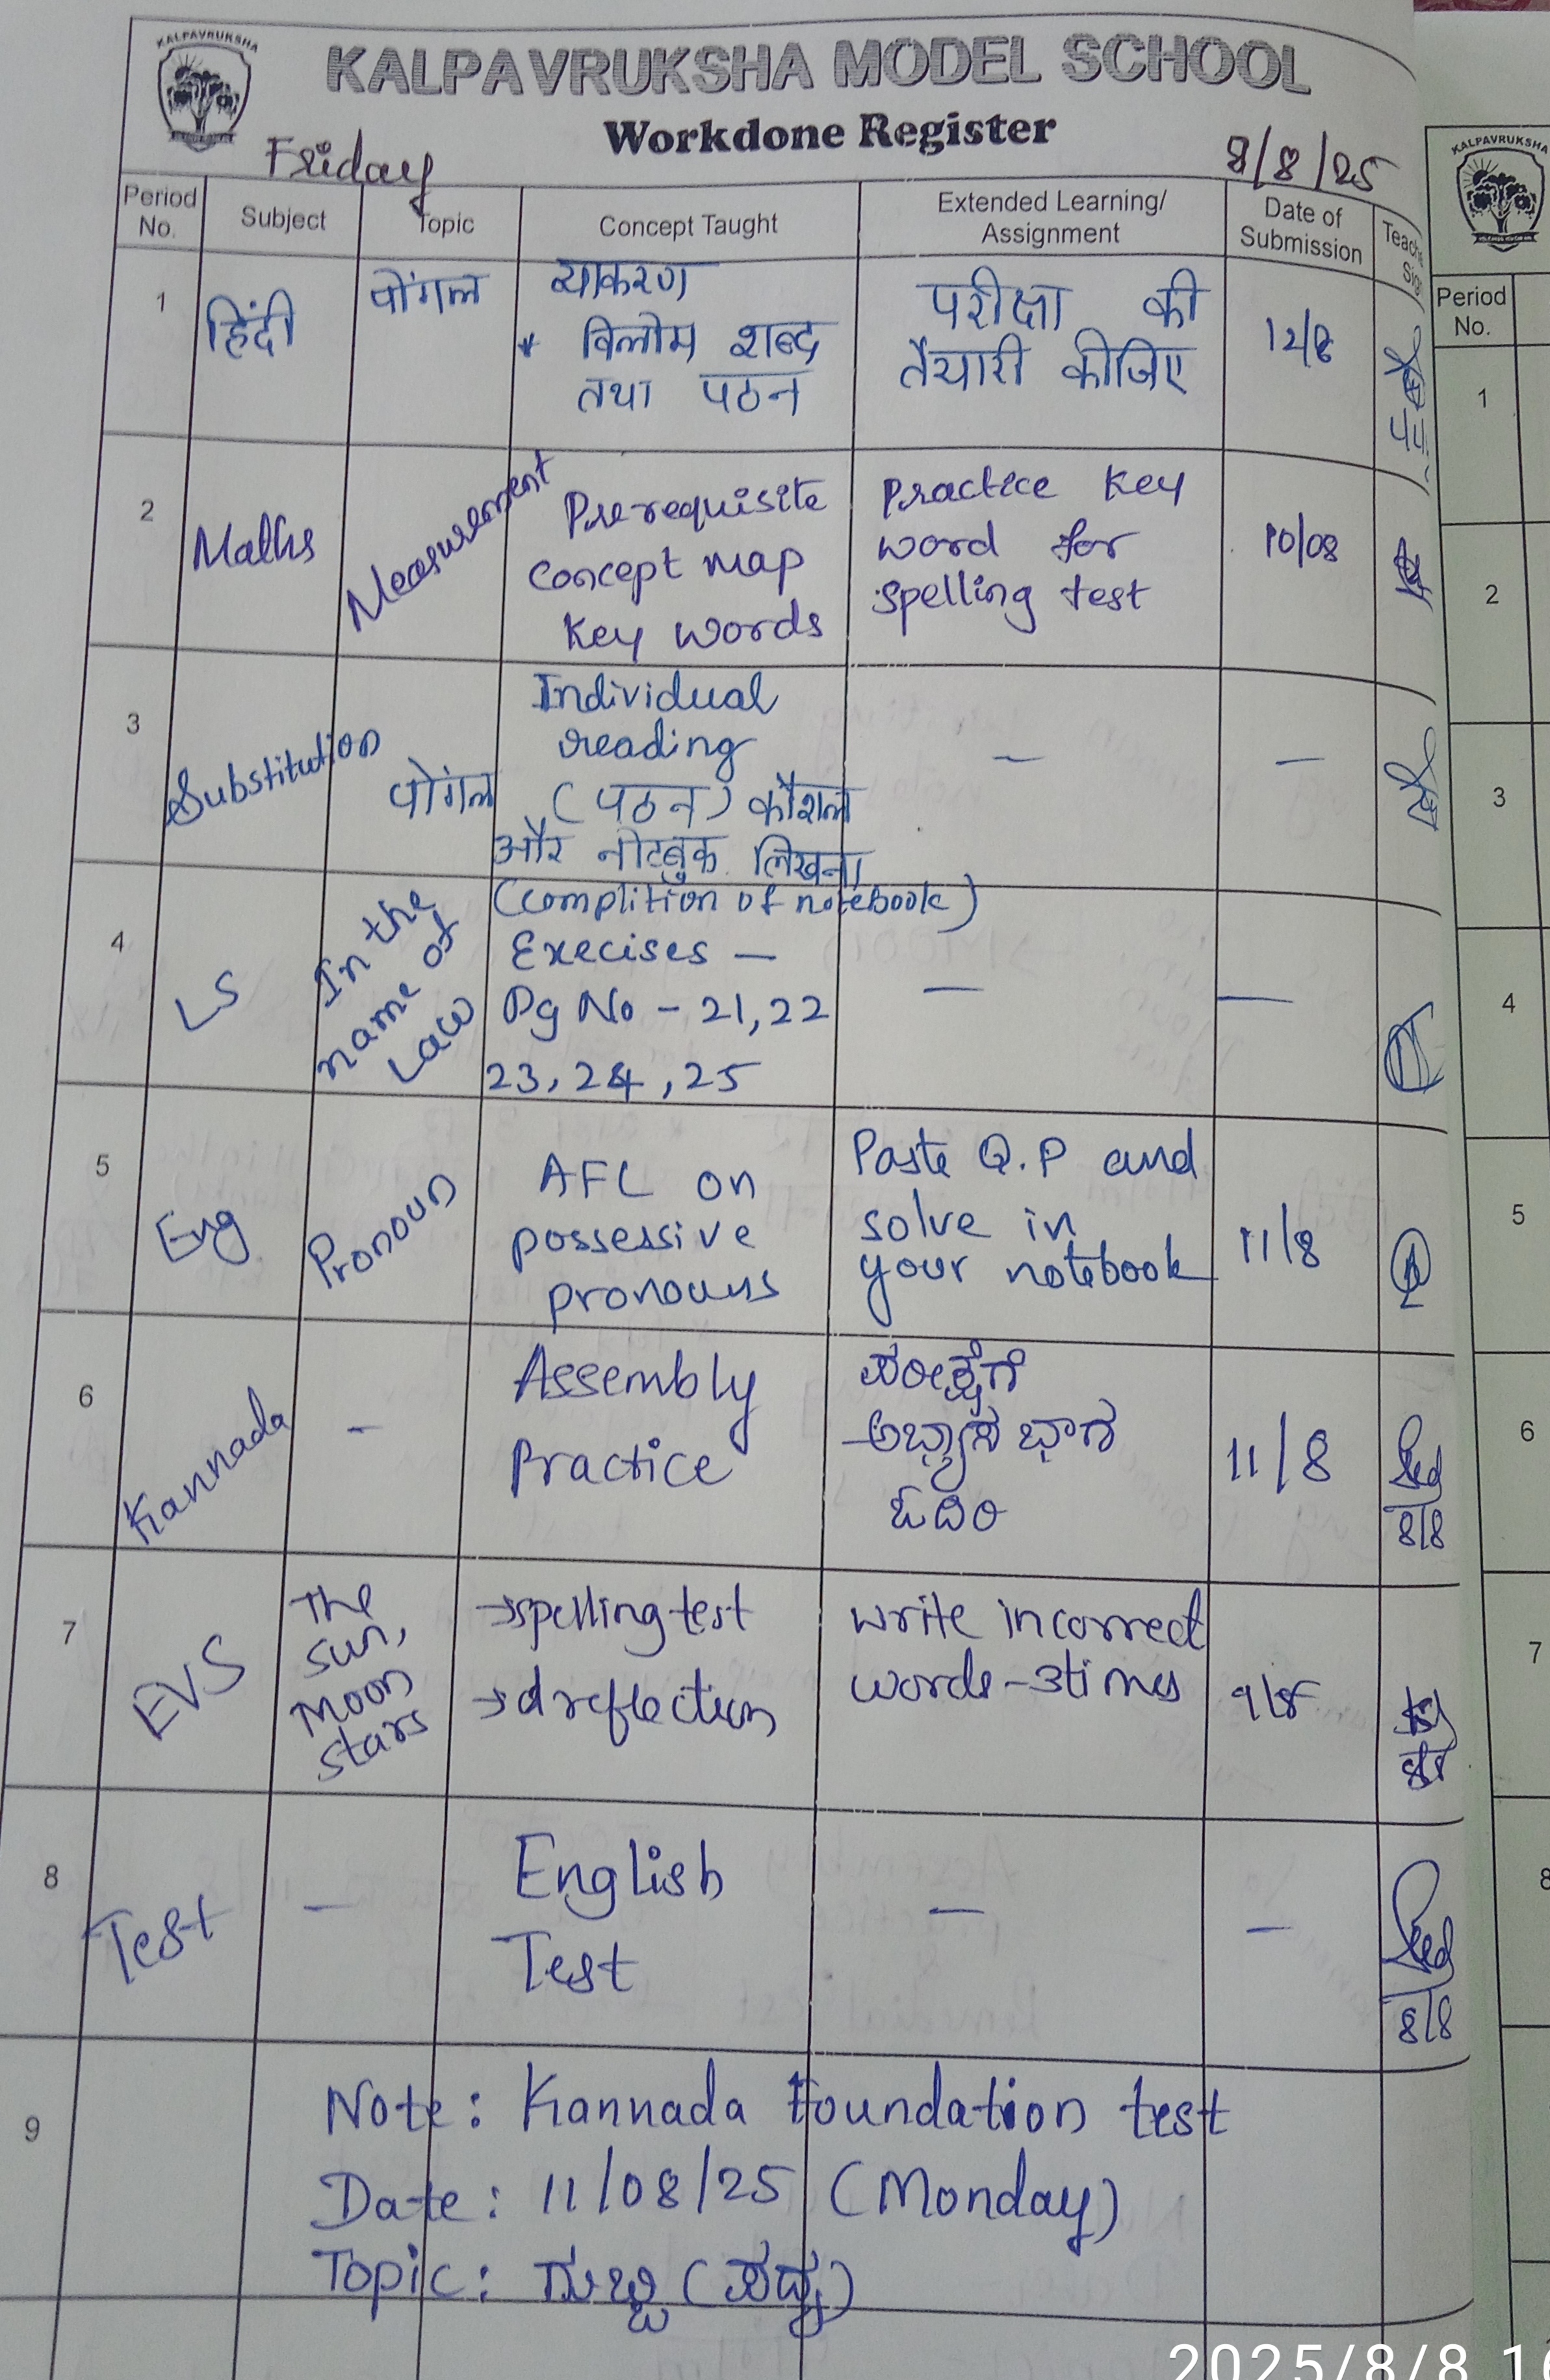 KALPAVRUKSHA
KALPAVRUKSHA MODEL SCHOOL
Workdone Register
Friday
8/8/25
Period No.
Subject
Topic
Concept Taught
Extended Learning/
Assignment
Date of
Submission
1
हिंदी
पोंगल
व्याकरण
* विलोम शब्द
तथा पठन
परीक्षा की
तैयारी कीजिए
12/8
2
Maths
Measurement
Prerequisite
concept map
key words
Practice key
word for
spelling test
10/08
3
Substitution
पोंगल
Individual
reading
(पठन) कौशल
और नोटबुक लिखना
(complition of notebook)
—
—
4
LS
In the
name of
Law
Execises —
Pg No - 21,22
23, 24, 25
—
—
5
Eng
Pronoun
AFL on
possessive
pronouns
Paste Q.P and
solve in
your notebook
11/8
6
Kannada
-
Assembly
Practice
ಪರೀಕ್ಷೆಗೆ
ಅಭ್ಯಾಸ ಭಾಗ
ಓದಿರಿ
11/8
8/8
7
EVS
The
sun,
Moon
stars
→spelling test
→d reflection
write incorrect
words-3times
9/8
8
Test
—
English
Test
—
—
8/8
9
Note: Kannada Foundation test
Date: 11/08/25 (Monday)
Topic: ಗುಬ್ಬಿ (ಪದ್ಯ)
KALPAVRUKSHA
Period
No.
1
2
3
4
5
6
7
8
2025/8/8